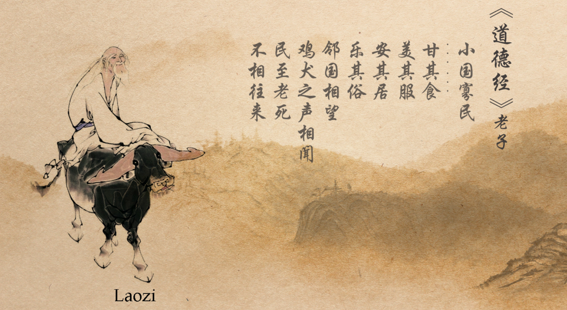 《道德经》老子
小国寡民
……
甘其食
美其服
安其居
乐其俗
邻国相望
鸡犬之声相闻
民至老死
不相往来
Laozi